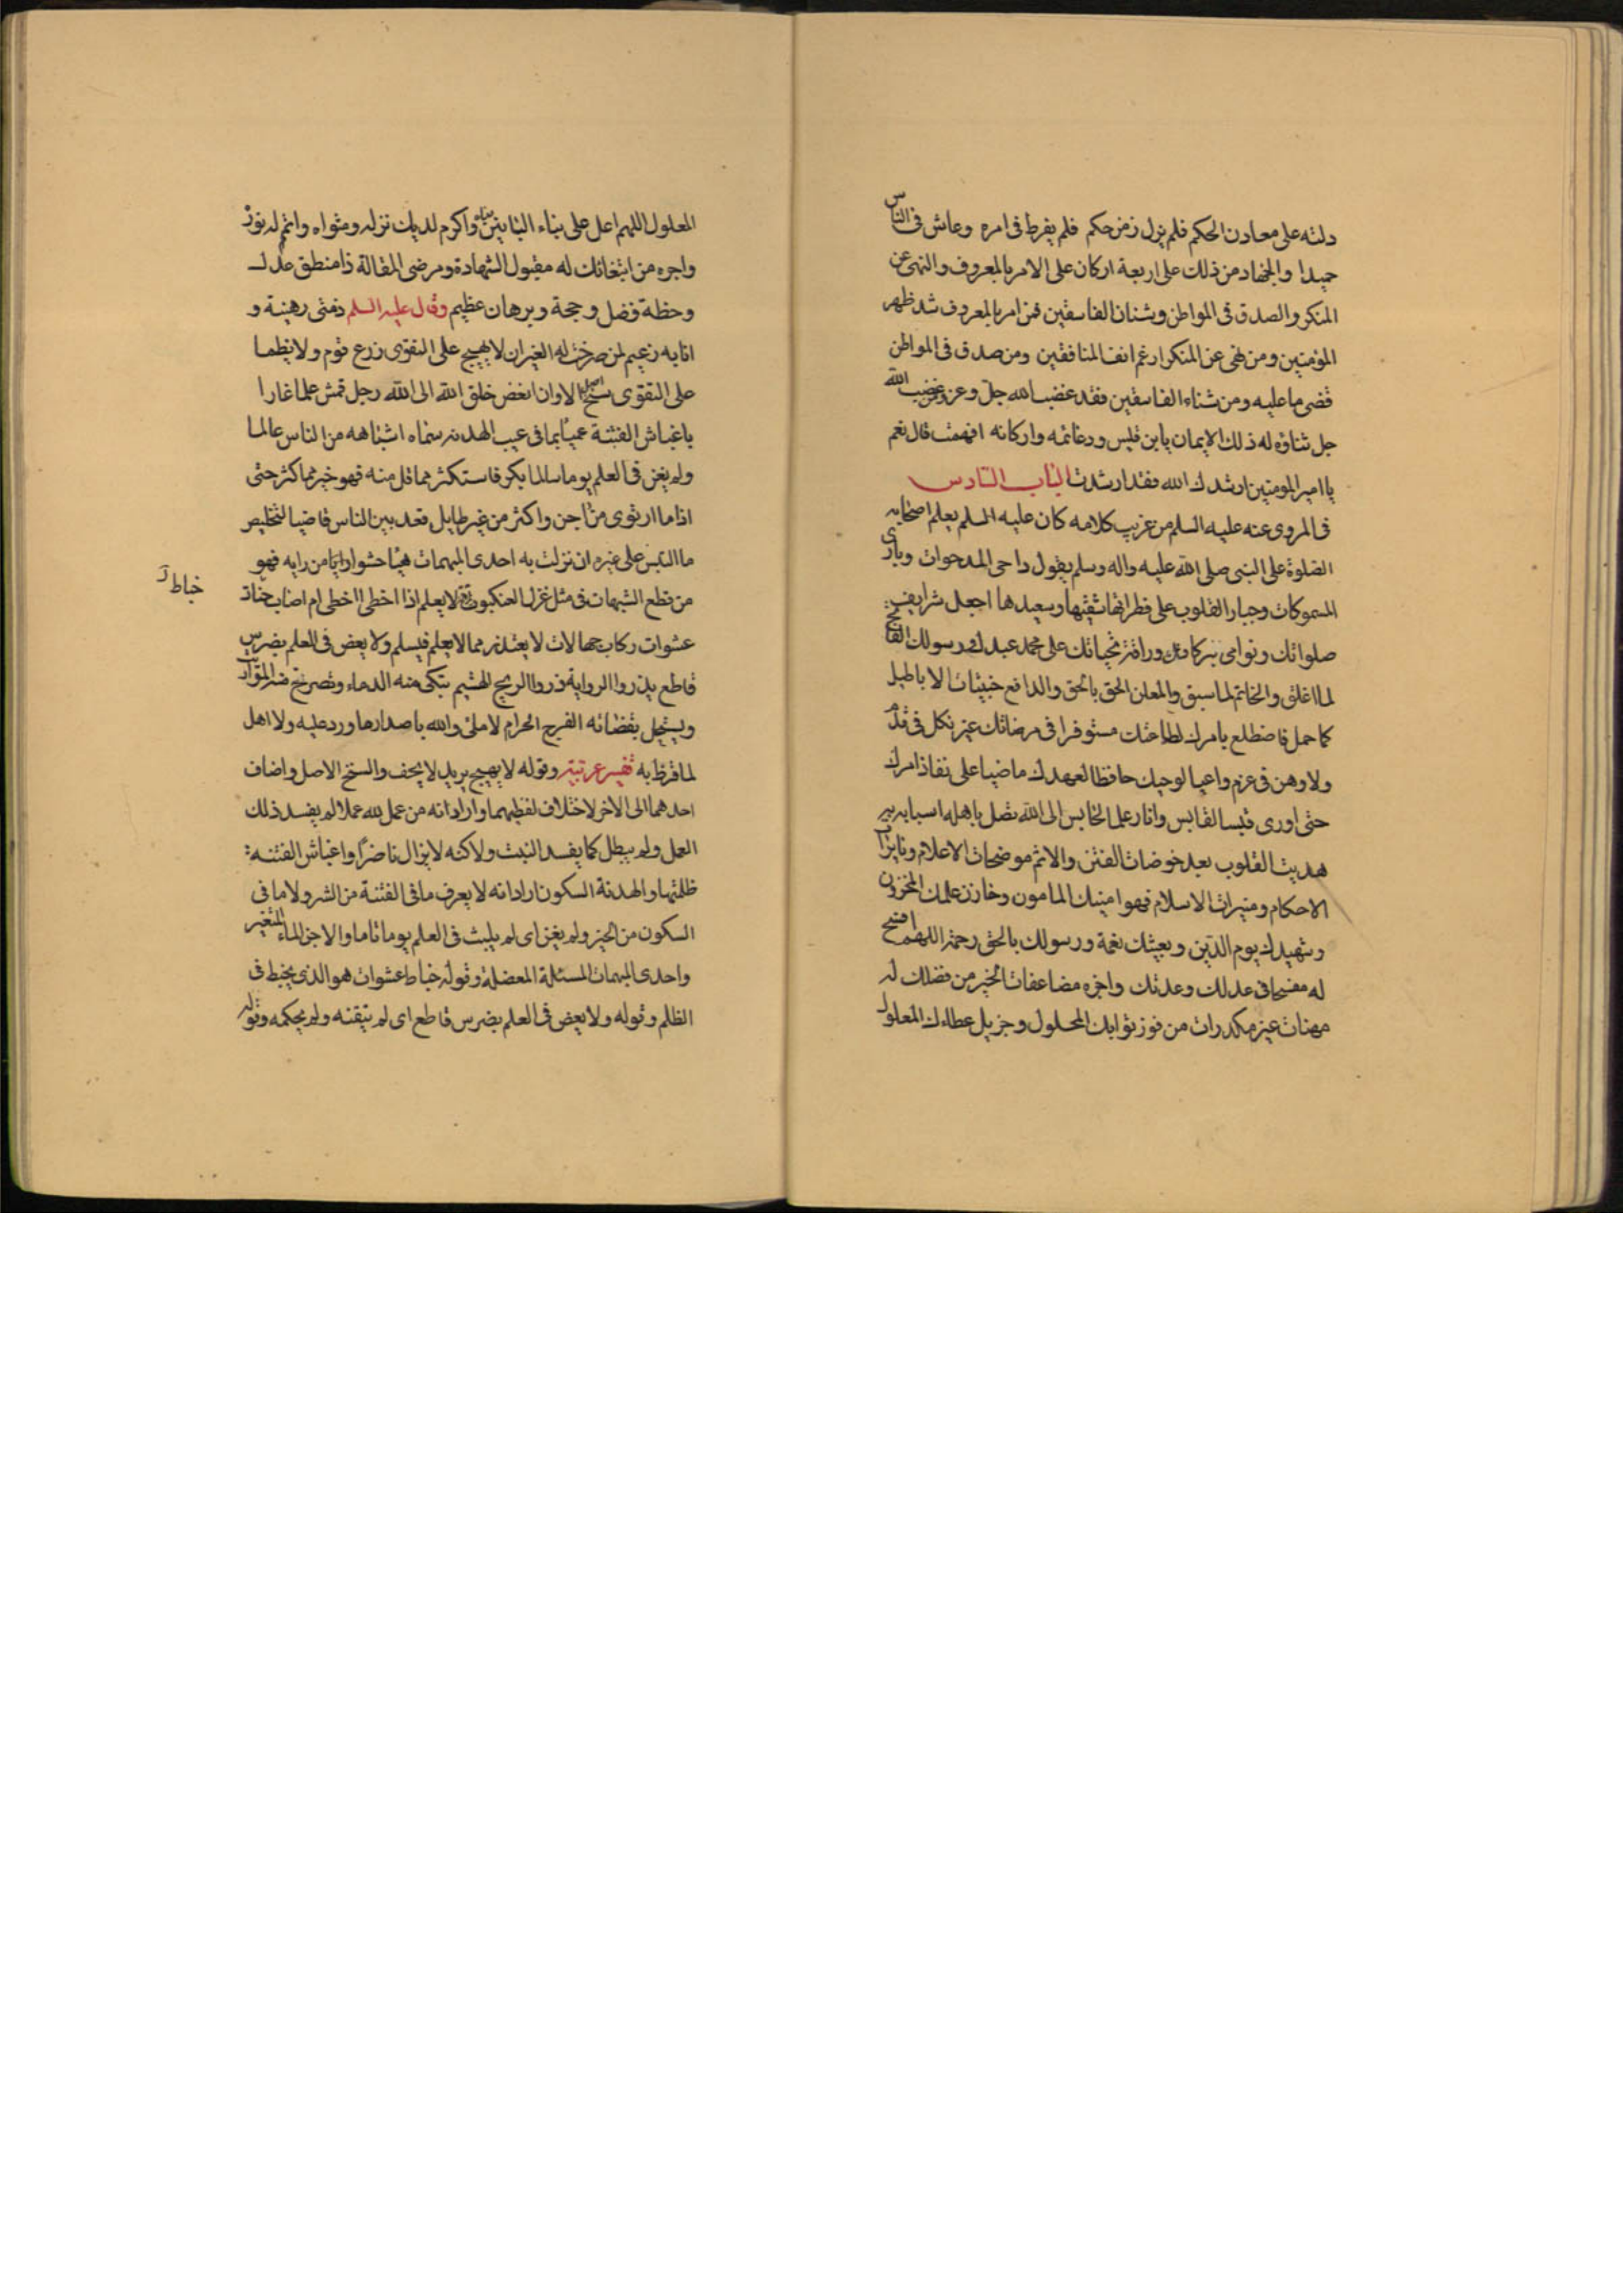 دلته على معادن الحكم فلم يزل زمن حكم فلم يفرط فى امره وعاش فى الناس
حميدا والجهاد من ذلك على اربعة اركان على الامر بالمعروف والنهى عن
المنكر والصدق فى المواطن وشنان الفاسقين فمن امر بالمعروف شد ظهر
المؤمنين ومن نهى عن المنكر ارغم انف المنافقين ومن صدق فى المواطن
قضى ما عليه ومن شناء الفاسقين فقد غضب لله جل وعز ومن غضب الله
جل ثناؤه له ذلك الايمان يابن قيس ودعائمه واركانه افهمت قال نعم
يا امير المومنين ارشدك الله فقد ارشدت الباب السادس
فى المروى عنه عليه السلم من غريب كلامه كان عليه السلم يعلم اصحابه
الصلوة على النبى صلى الله عليه واله وسلم يقول داحى المدحوات وبارى
المسموكات وجبار القلوب على فطراتها شقيها وسعيدها اجعل شرايف
صلواتك ونوامى بركاتك ورافة تحياتك على محمد عبدك ورسولك الفاتح
لما اغلق والخاتم لما سبق والمعلن الحق بالحق والدافع خبيثات الاباطيل
كما حمل فاضطلع بامرك لطاعتك مستوفرا فى مرضاتك غير نكل فى قدم
ولا وهن فى عزم واعيا لوحيك حافظا لعهدك ماضيا على نفاذ امرك
حتى اورى قبسا لقابس وانار على الخابس الى الله تصل باهله اسبابه به
هديت القلوب بعد خوضات الفتن والاثم موضحات الاعلام ونايرات
الاحكام ومنيرات الاسلام فهو امينك المامون وخازن علمك المخزون
وشهيدك يوم الدين وبعيثك نعمة ورسولك بالحق رحمة اللهم افسح
له مفسحا فى عدلك وعدنك واجزه مضاعفات الخير من فضلك له
مهنات غير مكدرات من فوز ثوابك المحلول وجزيل عطاءك المعلول
المعلول اللهم اعل على بناء البانين بناه واكرم لديك نزله ومثواه واتمم له نوره
واجره من ابتغاثك له مقبول الشهادة ومرضى المقالة ذا منطق عدل
وخطة فضل وحجة وبرهان عظيم وقال عليه السلم ذمتى رهينة و
انا به زعيم لمن صرحت له العبر ان لا يهيج على التقوى زرع قوم ولا يظما
على التقوى سنخ اصل الا وان ابغض خلق الله الى الله رجل قمش علما غارا
باغباش الفتنة عميا بما فى عيب الهدنه سماه اشباهه من الناس عالما
ولم يغن فى العلم يوما سالما بكر فاستكثر مما قل منه فهو خير مما كثر حتى
اذا ما ارتوى من اجن واكثر من غير طايل قعد بين الناس قاضيا لتخليص
ما التبس على غيره ان نزلت به احدى المبهمات هيا حشوا رايا من رايه فهو
من قطع الشبهات فى مثل غزل العنكبوت لا يعلم اذا اخطى ا اخطى ام اصاب خباط
خباط
عشوات ركاب جهالات لا يعتذر مما لا يعلم فيسلم ولا يعض فى العلم بضرس
قاطع يذروا الرواية ذروا الريح الهشيم تبكى منه الدماء وتصرخ منه المواريث
ويستحل بقضائه الفرج الحرام لا ملئ والله باصدار ما ورد عليه ولا اهل
لما قرظ به تفسير غريبه وقوله لا يهيج يريد لا يجف والسنخ الاصل واضاف
احدهما الى الاخر لاختلاف لفظيهما واراد انه من عمل لله عملا لم يفسد ذلك
العمل ولم يبطل كما يفسد النبت ولاكنه لا يزال ناضرا واغباش الفتنه
ظلمتها والهدنة السكون اراد انه لا يعرف ما فى الفتنة من الشر ولا ما فى
السكون من الخير ولم يغن اى لم يلبث فى العلم يوما تاما والاجن الماء المتغير
واحدى المبهمات المسئلة المعضلة وقوله خباط عشوات هو الذى يخبط فى
الظلم وقوله ولا يعض فى العلم بضرس قاطع اى لم يتقنه ولم يحكمه وقوله